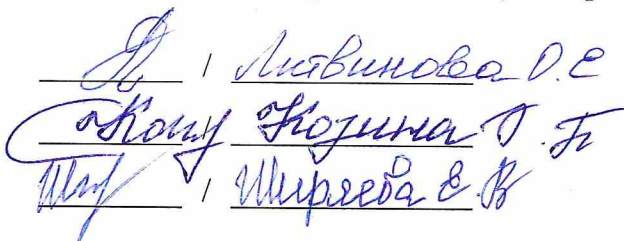 / Литвинова О.Е
/ Козина Г.П
/ Ширяева Е.В